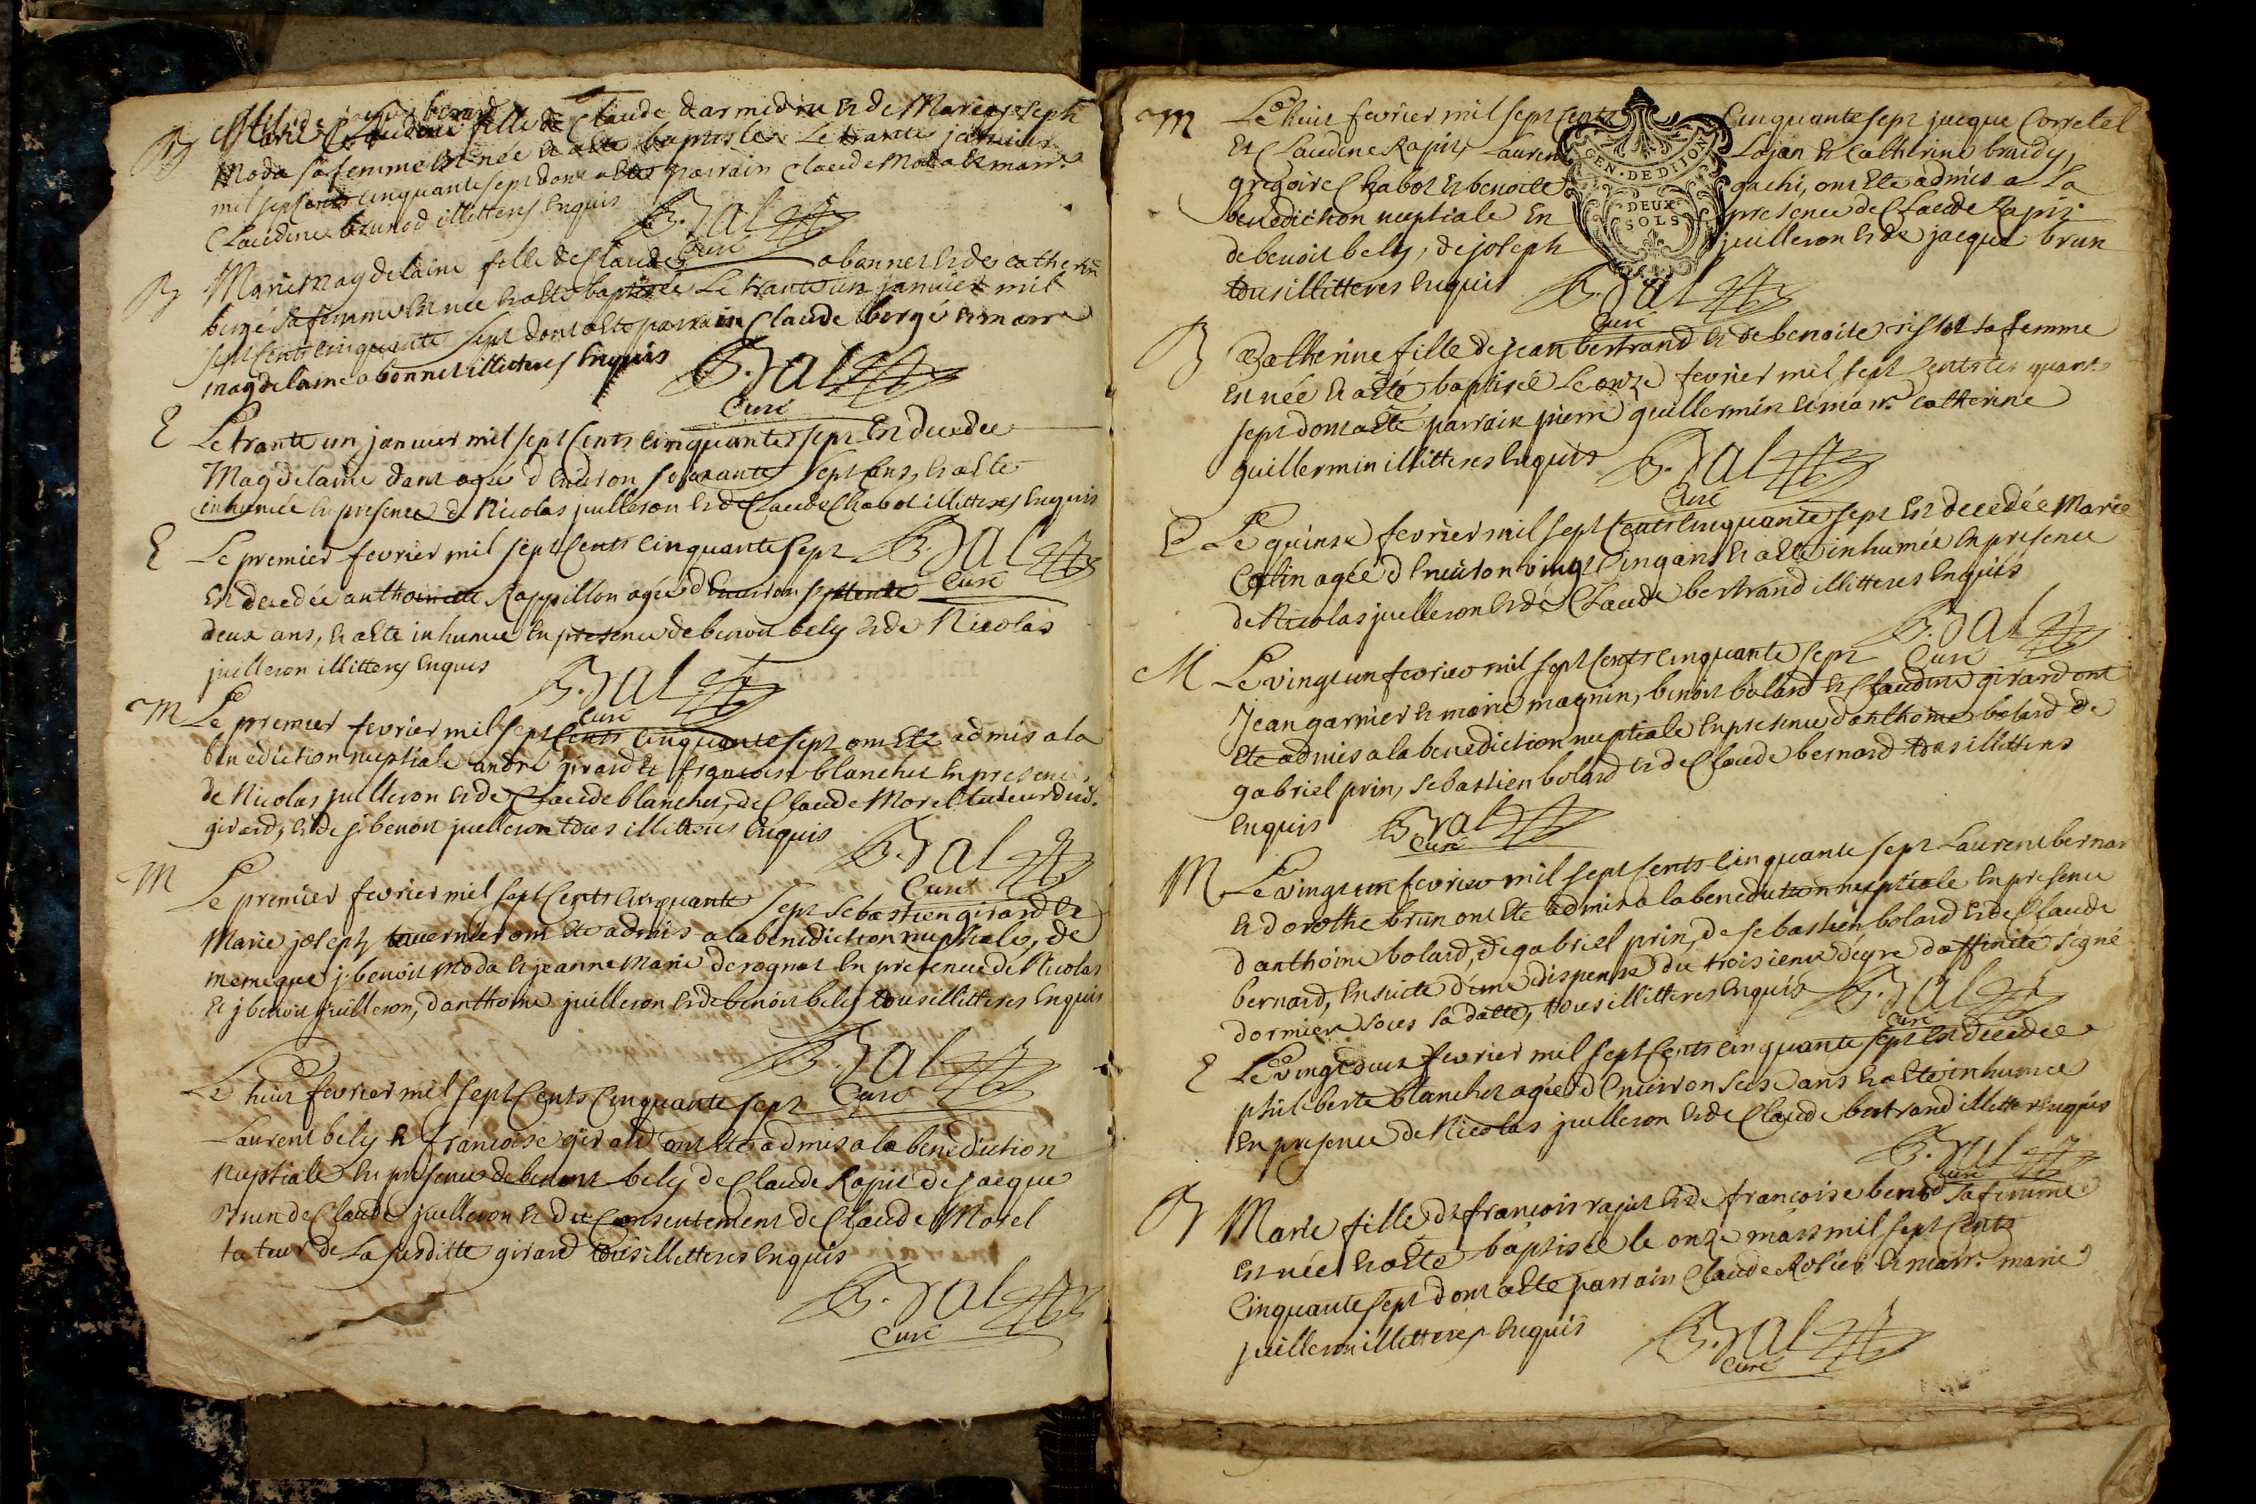 B Marie Claudine fille de Claude darmedin et de Marie joseph
Moda sa femme est née et a eté baptisée Le trante janvier
mil sept cents cinquante sept dont a eté parrain Claude Moda et marr.
Claudine brunod illitteres Enquis B. Bal
Curé
B Marie Magdelaine fille de Claude abonnet et de catherine
bergé sa femme est née et a eté baptisée Le trante un janvier mil
sept cents cinquante sept dont a eté parrain Claude bergé et marr
magdelaine abonnet illitteres Enquis B. Bal
Curé
E Le trante un janvier mil sept Cents cinquante sept Est decedée
Magdelaine dant agée d Environ soixante sept ans, et a eté
inhumée En presence de Nicolas juilleron et de Claude Chabot illitteres Enquis
E Le premier fevrier mil sept Cents cinquante sept B. Bal
Curé
Est decedée anthoinette Rappillon agée d Environ septente
deux ans, et a eté inhumée En presence de benoit bely et de Nicolas
juilleron illitteres Enquis B. Bal
Curé
M Le premier fevrier mil sept Cents cinquante sept ont Eté admis a la
benediction nuptiale andré girard et françoise blanchet En presence
de Nicolas juilleron et de Claude blanchet, de Claude Morel tuteur dud.
girard, et de j. benoit juilleron tous illitteres Enquis B. Bal
Curé
M Le premier fevrier mil sept Cents cinquante sept sebastien girard et
Marie joseph tavernier ont eté admis a la benediction nuptiale, de
meme que j. benoit moda et jeanne Marie derognat En presence de Nicolas
et j benoit juilleron, d anthoine juilleron et de benoit bely tous illitteres Enquis
B. Bal
Curé
Le huit fevrier mil sept Cents Cinquante sept
Laurent bely et françoise girard ont eté admis a la benediction
Nuptiale En presence de benoit bely de Claude Rapit de jacque
Brun de Claude juilleron et du Consentement de Claude Morel
tuteur de La susditte girard tous illitteres Enquis
B. Bal
Curé
M Le huit fevrier mil sept Cents Cinquante sept jacque Corretel
Et Claudine Rapit, Laurent Lojan et Catherine braidy,
gregoire Chabot et benoite gachi, ont Eté admis a La
benediction nuptiale En presence de Claude Rapit
de benoit bely, de joseph juilleron et de jacque brun
tous illitteres Enquis B. Bal
Curé
GEN. DE DIJON
DEUX
SOLS
B Catherine fille de jean bertrand et de benoite ristot sa femme
Est née et a eté baptisée Le onze fevrier mil sept
sept dont a eté parrain pierre guillermin et marr. catherine
guillermin illitteres Enquis B. Bal
Curé
E Le quinze fevrier mil sept Cents Cinquante sept Est decedée Marie
Catin agée d Environ vingt Cinq ans et a eté inhumée En presence
de Nicolas juilleron et de Claude bertrand illitteres Enquis
B. Bal
Curé
M Le vingt un fevrier mil sept Cents cinquante sept
Jean garnier et marie magnin, benoit bolard et Claudine girard ont
Eté admis a la benediction nuptiale En presence d anthoine bolard de
gabriel prin, sebastien bolard et de Claude bernard tous illitteres
Enquis B. Bal
Curé
M Le vingt un fevrier mil sept Cents Cinquante sept Laurent bernar
et dorothe brun ont Eté admis a la benediction nuptiale En presence
d anthoine bolard, de gabriel prin, de sebastien bolard et de Claude
bernard, En suite d'une dispense du troisieme degre d affinité signé
dormier sous sa datte, tous illitteres Enquis B. Bal
Curé
E Le vingt deux fevrier mil sept Cents cinquante sept Est decedée
philiberte blanchet agée d Environ seise ans et a eté inhumée
En presence de Nicolas juilleron et de Claude bertrand illitter Enquis
B. Bal
Curé
B Marie fille de francois rapit et de francoise benod sa femme
Est née et a eté baptisée le onze mars mil sept Cents
Cinquante sept dont a eté parrain Claude Rosier et marr. marie
juilleron illitteres Enquis B. Bal
Curé